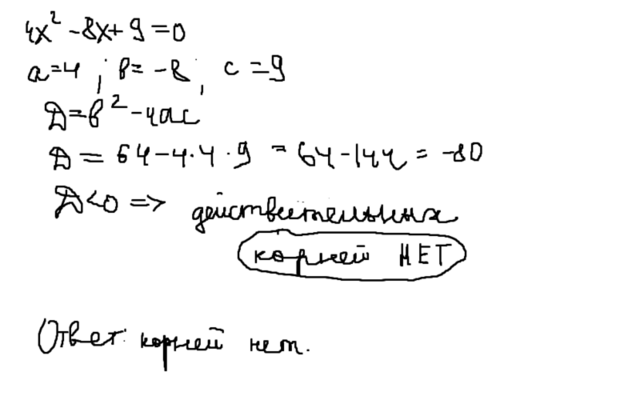 4x² -8x+9=0
a=4 ; b= -8 ; c=9
D=b²-4ac
D = 64-4·4·9 = 64-144 = -80
D<0 => действительных
корней НЕТ
Ответ: корней нет.